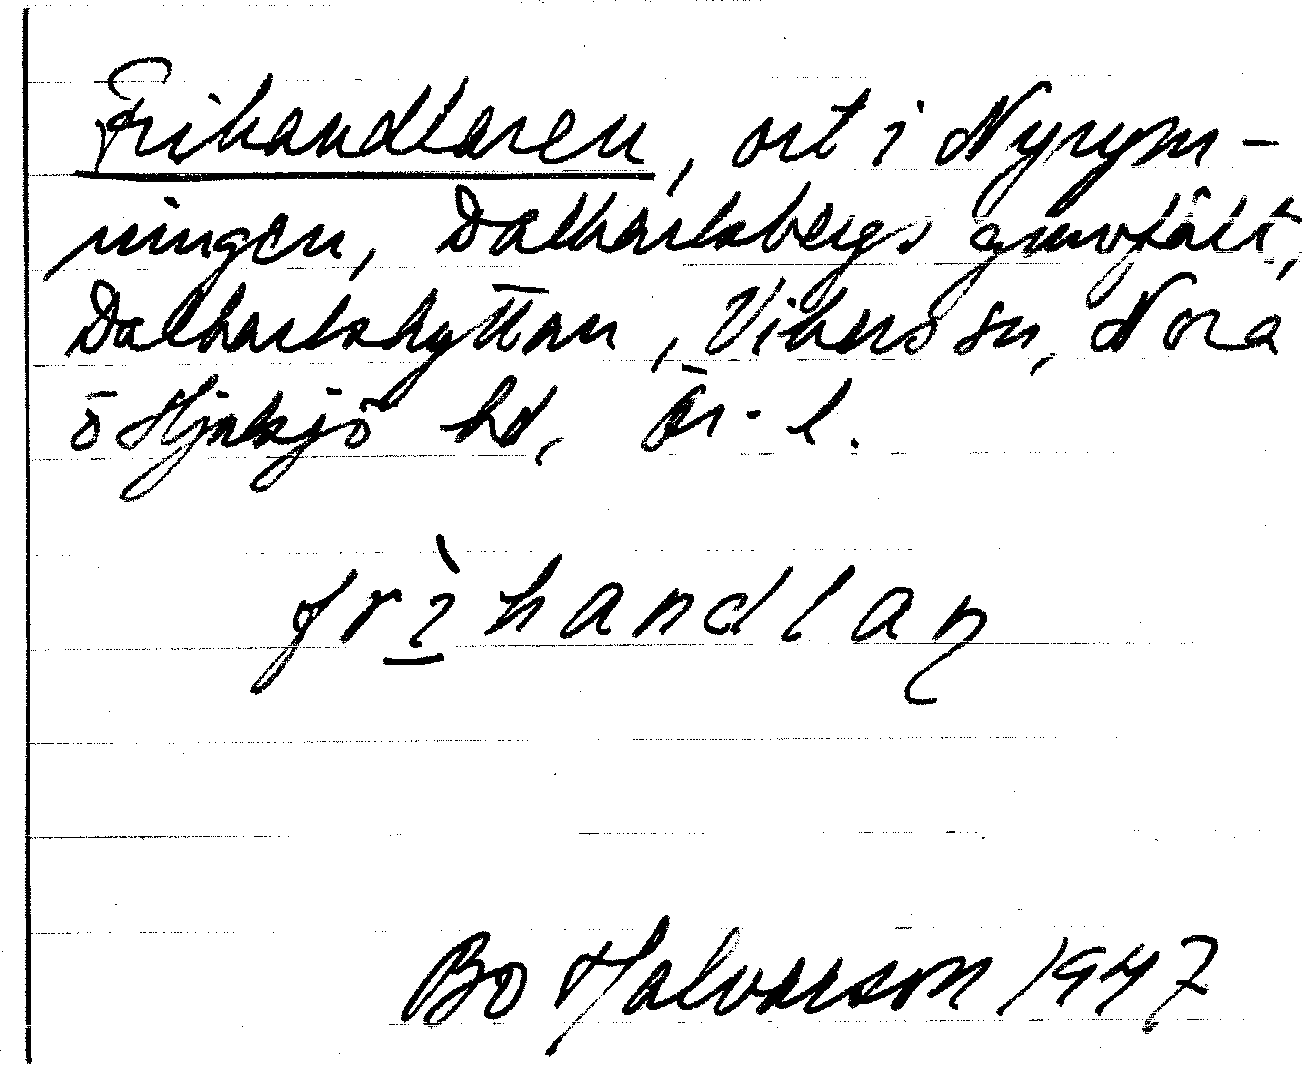 Frihandlaren, ort i Nyrym-
ningen, Dalkarlsbergs gruvfält,
Dalkarlshyttan, Vikers sn, Nora
o Hjulsjö hd, Ör. l.
frìhandlaṇ
Bo Halvarson 1947